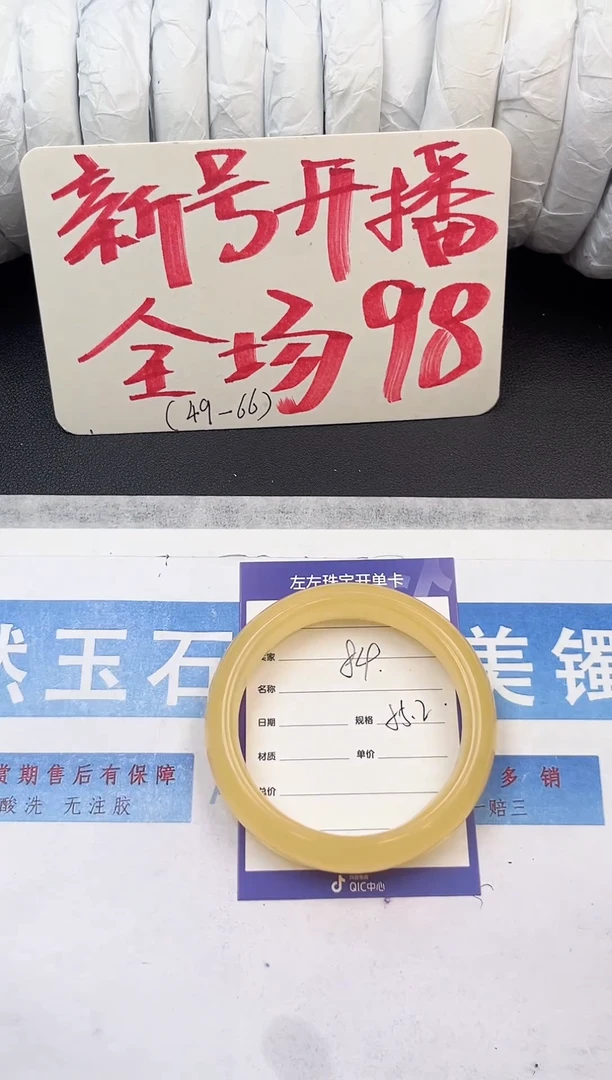 新号开播
全场98
(49-66)
左左珠宝开单卡
然玉石
美镯
家
84.
名称
日期
规格
材质
单价
总价
期售后有保障
多销
酸洗 无注胶
一赔三
QIC中心